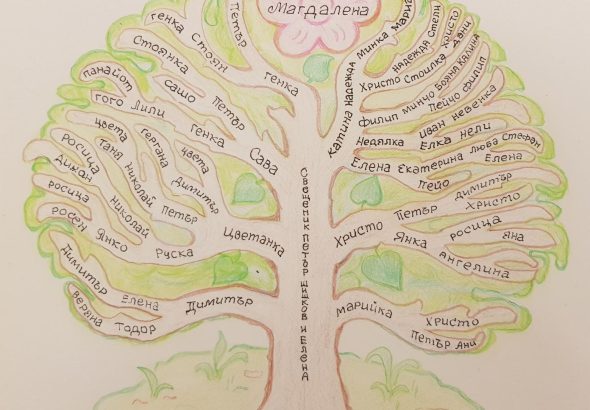 Магдалена
Генка Стоян
Петър
Стоянка
Генка
Панайот
Сашо Петър
Гого Лили Генка Сава
Цвета Гергана Цвета Димитър
Росица Таня Николай Петър
Дижан Николай
Росица
Росен Янко Руска Цветанка
Димитър Елена Димитър
Веряна Тодор
Свещеник Петър Шишков и Елена
Катина Надежда Минка
Надежда Степн
Христо Стоилка Христо Дани
Филип Минчо Бояна Калина
Пейчо Филип
Недялка Иван Невенка
Елка Нели
Елена Екатерина Люба Стефан
Елена
Пейо
Христо Петър Димитър
Христо
Янка Росица
Яна
Ангелина
Марийка Христо
Петър Ани